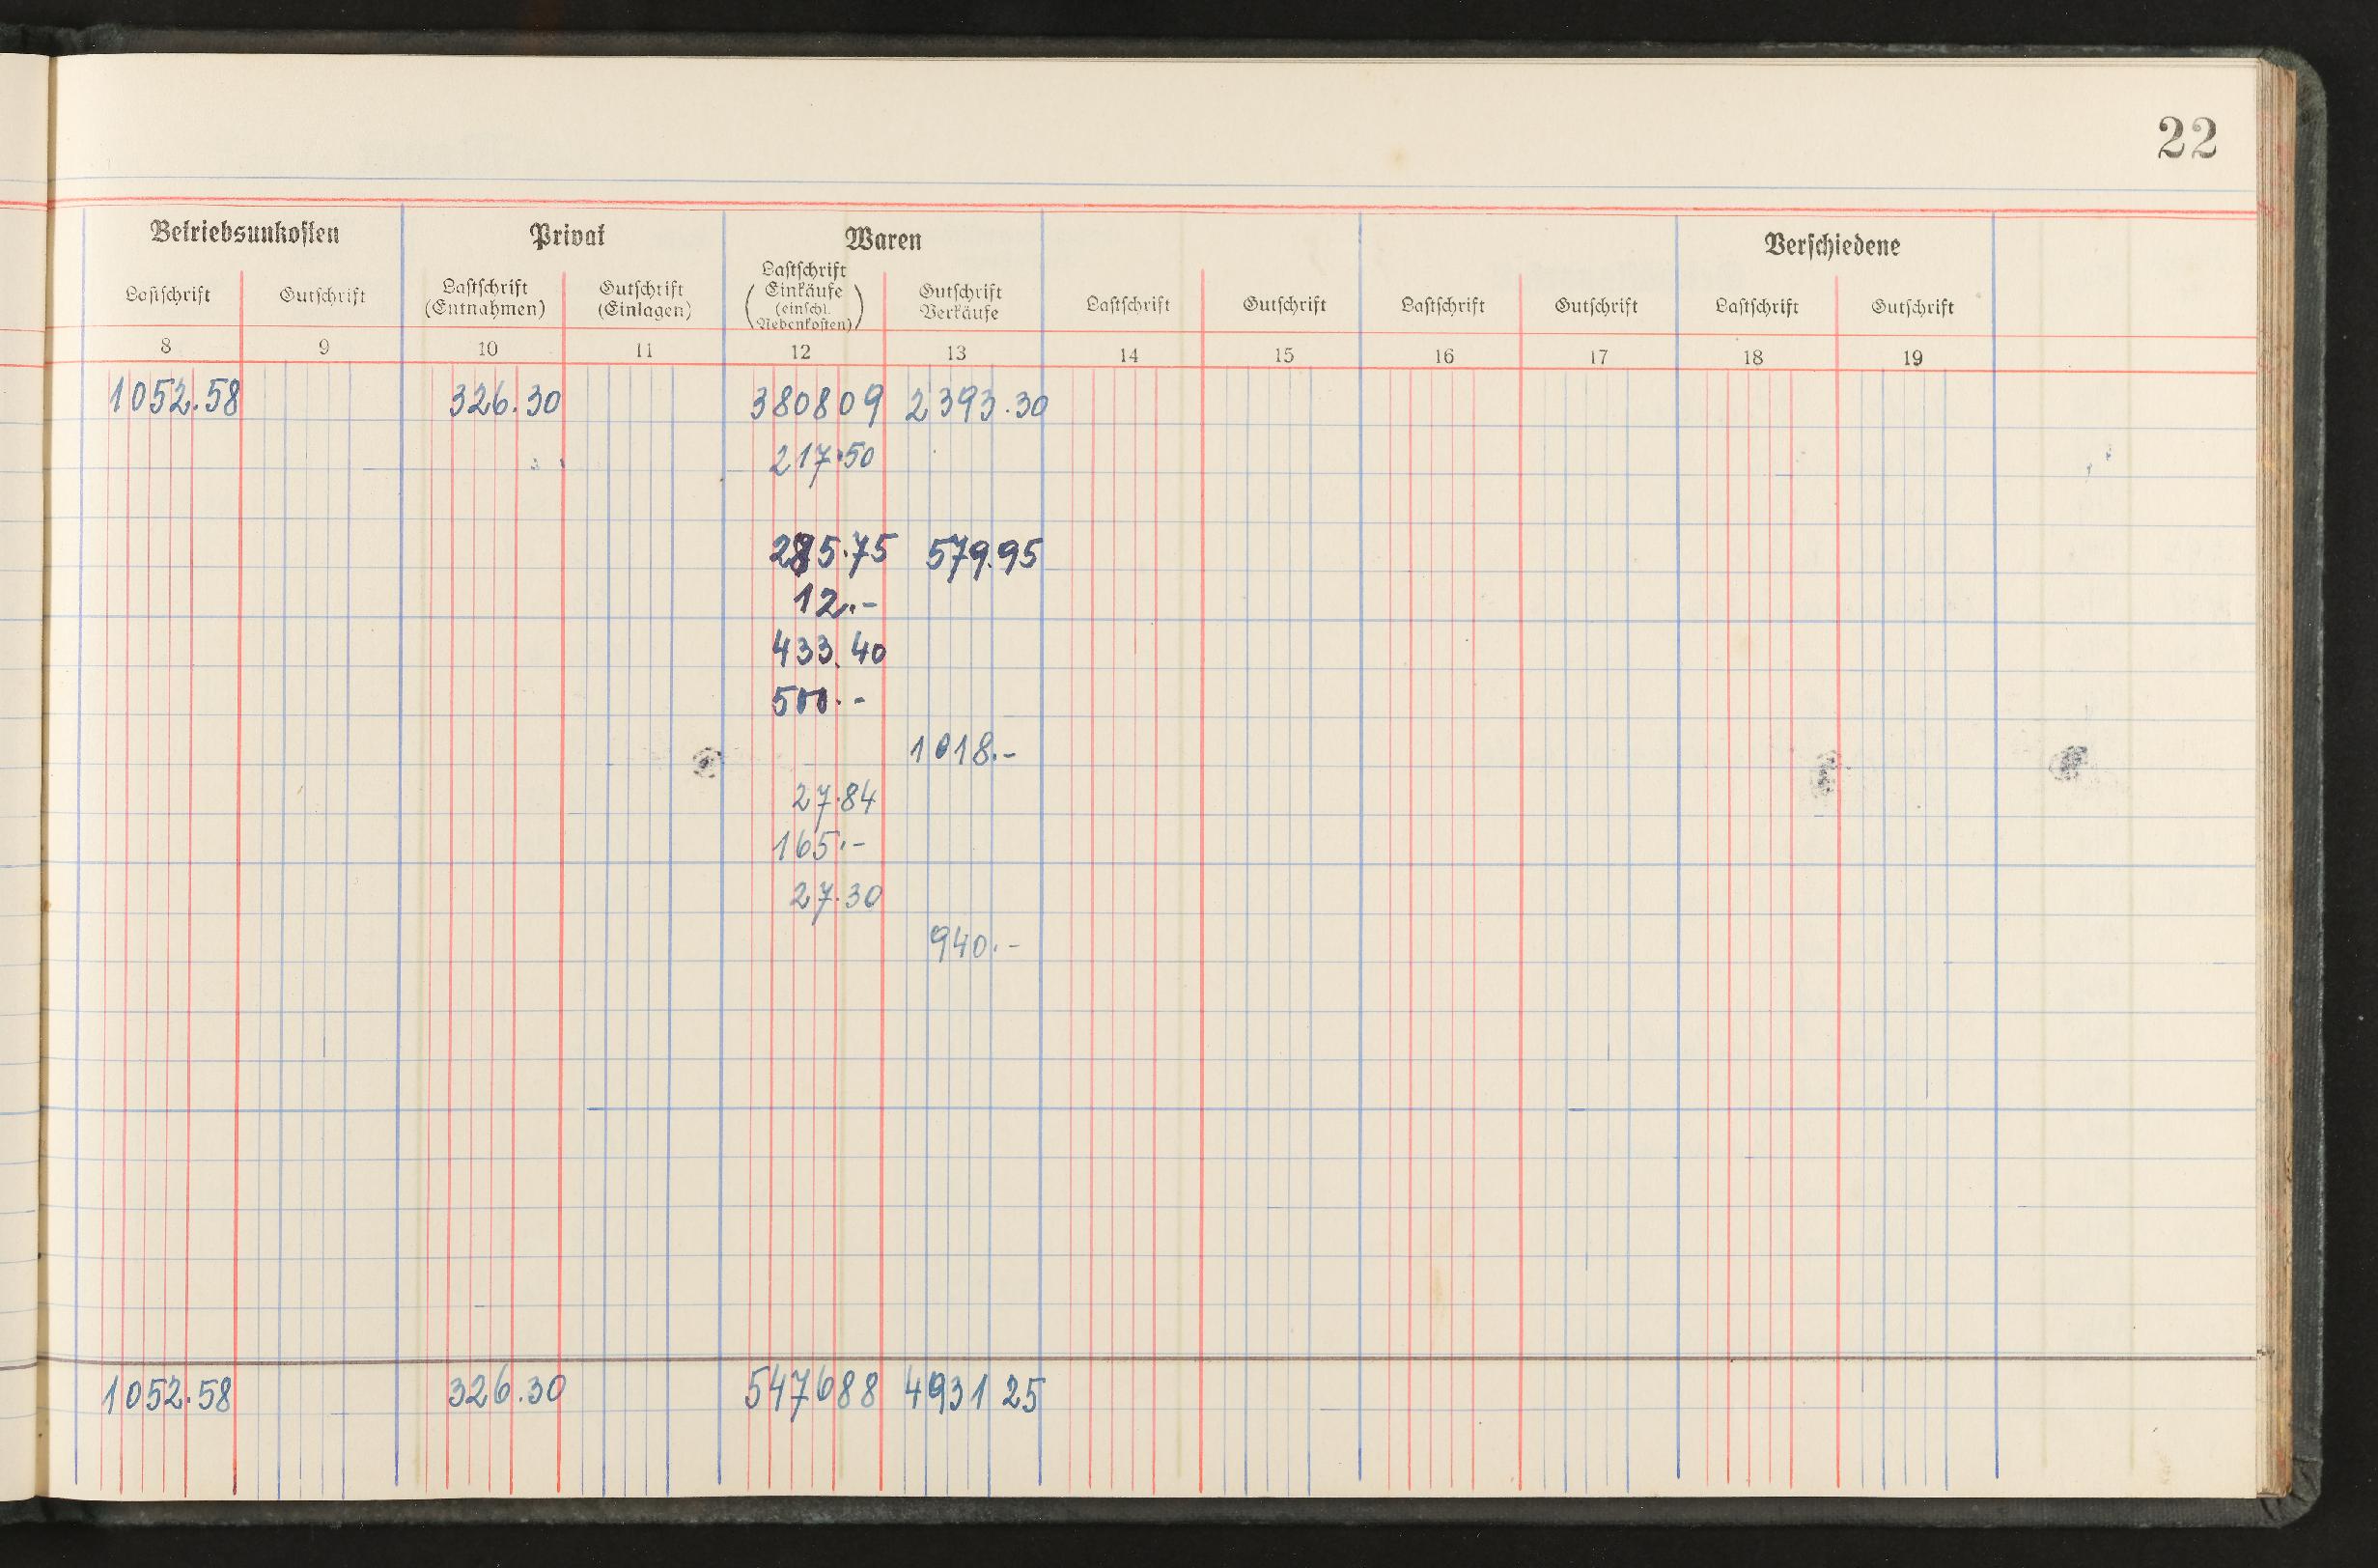 22
Betriebsunkosten Privat Waren Verschiedene
Lastschrift Gutschrift Lastschrift (Entnahmen) Gutschrift (Einlagen) Lastschrift (Einkäufe (einschl. Nebenkosten)) Gutschrift Verkäufe Lastschrift Gutschrift Lastschrift Gutschrift Lastschrift Gutschrift
8 9 10 11 12 13 14 15 16 17 18 19
1052.58 326.30 380809 2393.30
217.50
285.75 579.95
12.-
433.40
500.-
1018.-
27.84
165.-
27.30
940.-
1052.58 326.30 547688 4931 25